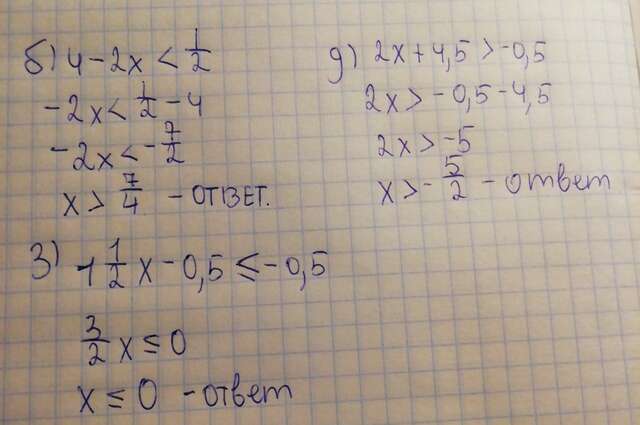 б) 4 - 2x < 1/2
-2x < 1/2 - 4
-2x < -7/2
x > 7/4 - ответ.
д) 2x + 4,5 > -0,5
2x > -0,5 - 4,5
2x > -5
x > -5/2 - ответ
з) 1 1/2 x - 0,5 ≤ -0,5
3/2 x ≤ 0
x ≤ 0 - ответ